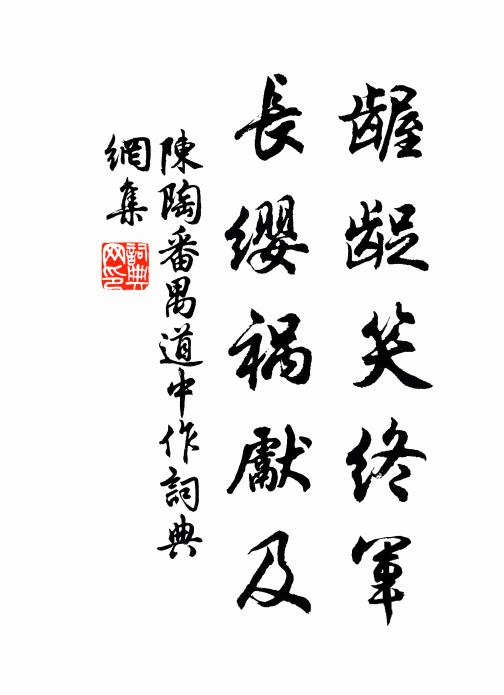 齷齪笑終軍
長纓禍獻及
陳陶番禺道中作詞典
網集
詞典
网印